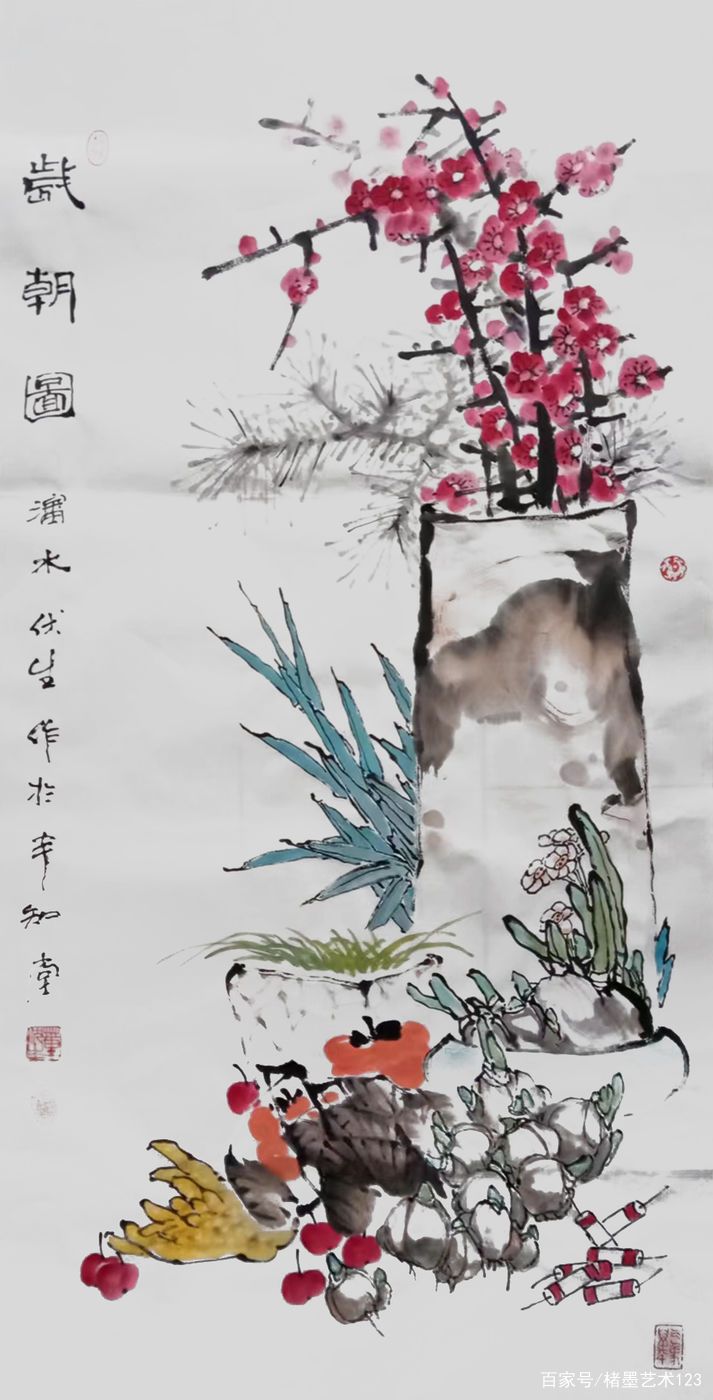 歲朝圖
濡水伏生作於辛知堂
百家号/楮墨艺术123